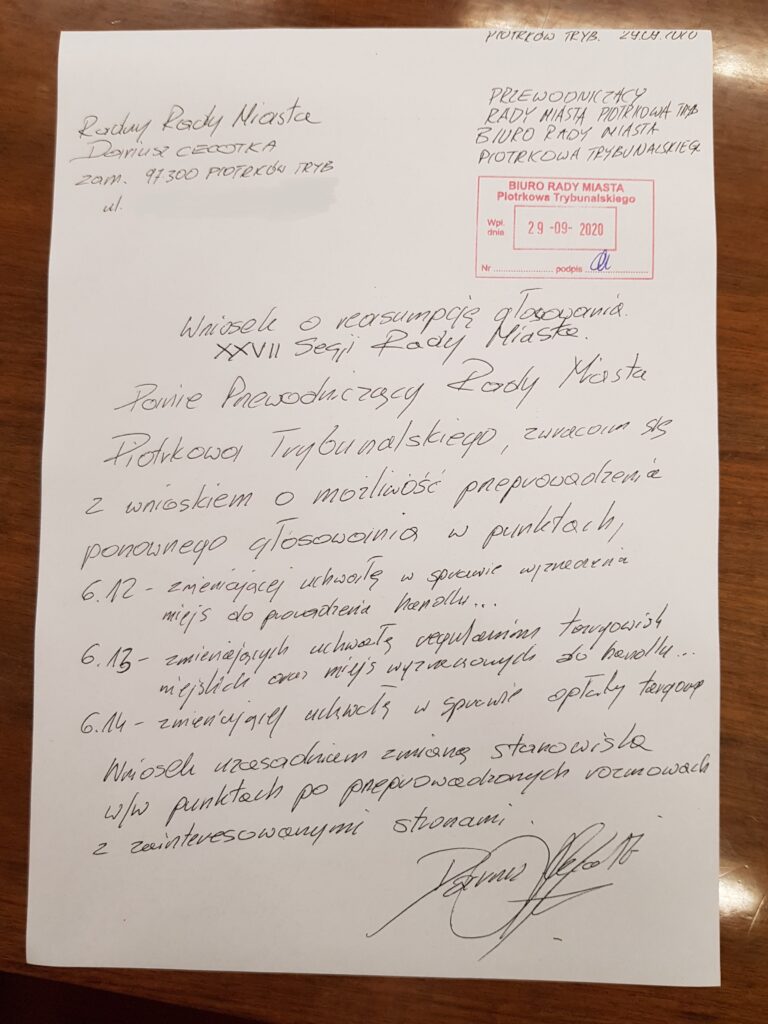 PIOTRKÓW TRYB. 29.09.2020
Radny Rady Miasta
Dariusz CECOTKA
zam. 97300 PIOTRKÓW TRYB
ul.
PRZEWODNICZĄCY
RADY MIASTA PIOTRKOWA TRYB
BIURO RADY MIASTA
PIOTRKOWA TRYBUNALSKIEGO
BIURO RADY MIASTA
Piotrkowa Trybunalskiego
Wpł. dnia 29 -09- 2020
Nr ........ podpis ........
Wniosek o reasumpcję głosowania.
XXVII Sesji Rady Miasta.
Panie Przewodniczący Rady Miasta
Piotrkowa Trybunalskiego, zwracam się
z wnioskiem o możliwość przeprowadzenia
ponownego głosowania w punktach,
6.12 - zmieniającej uchwałę w sprawie wyznaczenia
miejs do prowadzenia handlu...
6.13 - zmieniających uchwałę regulaminu targowisk
miejskich oraz miejs wyznaczonych do handlu...
6.14 - zmieniającej uchwałę w sprawie opłaty targowej
Wniosek uzasadniam zmianą stanowiska
w/w punktach po przeprowadzonych rozmowach
z zainteresowanymi stronami.